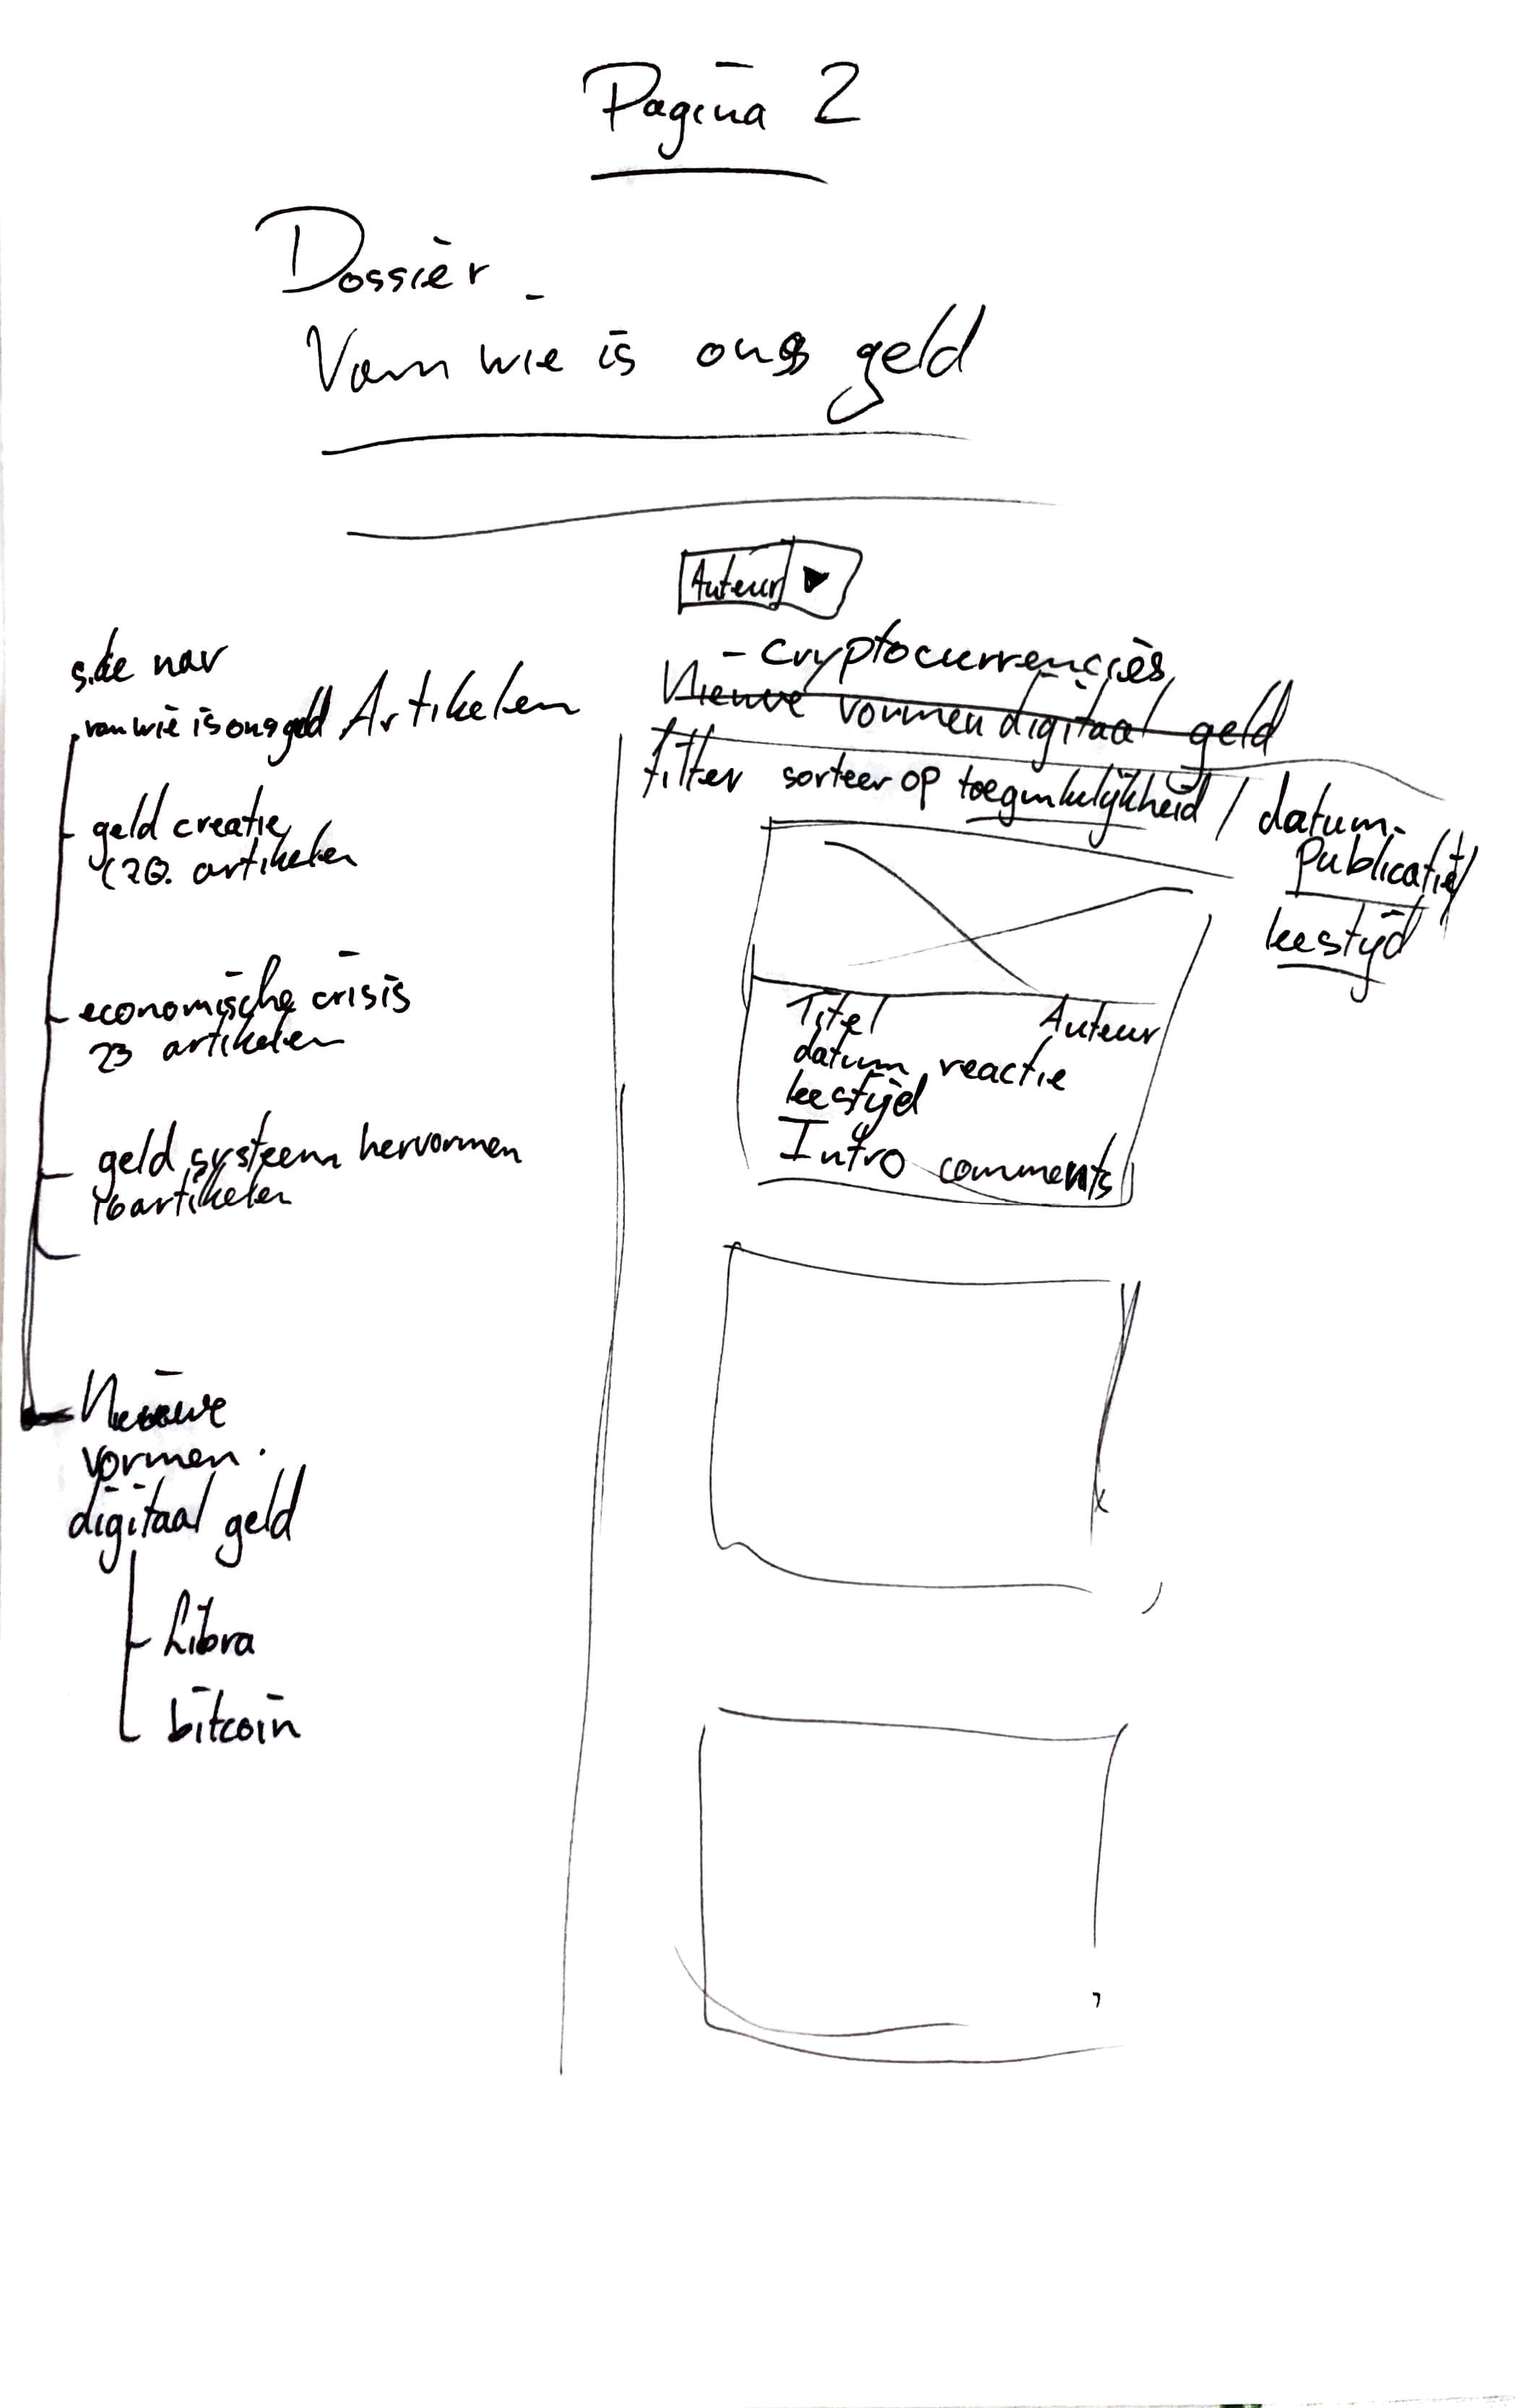 Pagina 2
Dossier
Van wie is ons geld
Auteur
side nav
van wie is ons geld Artikelen
geld creatie
(20. artikelen
economische crisis
23 artikelen
geld systeem hervormen
16 artikelen
Nieuwe
vormen
digitaal geld
Libra
bitcoin
- cryptocurrencies
Nieuwe vormen digitaal geld
filter sorteer op toegankelijkheid / datum
publicatie/
leestijd
Titel Auteur
datum reactie
leestijd
Intro comments